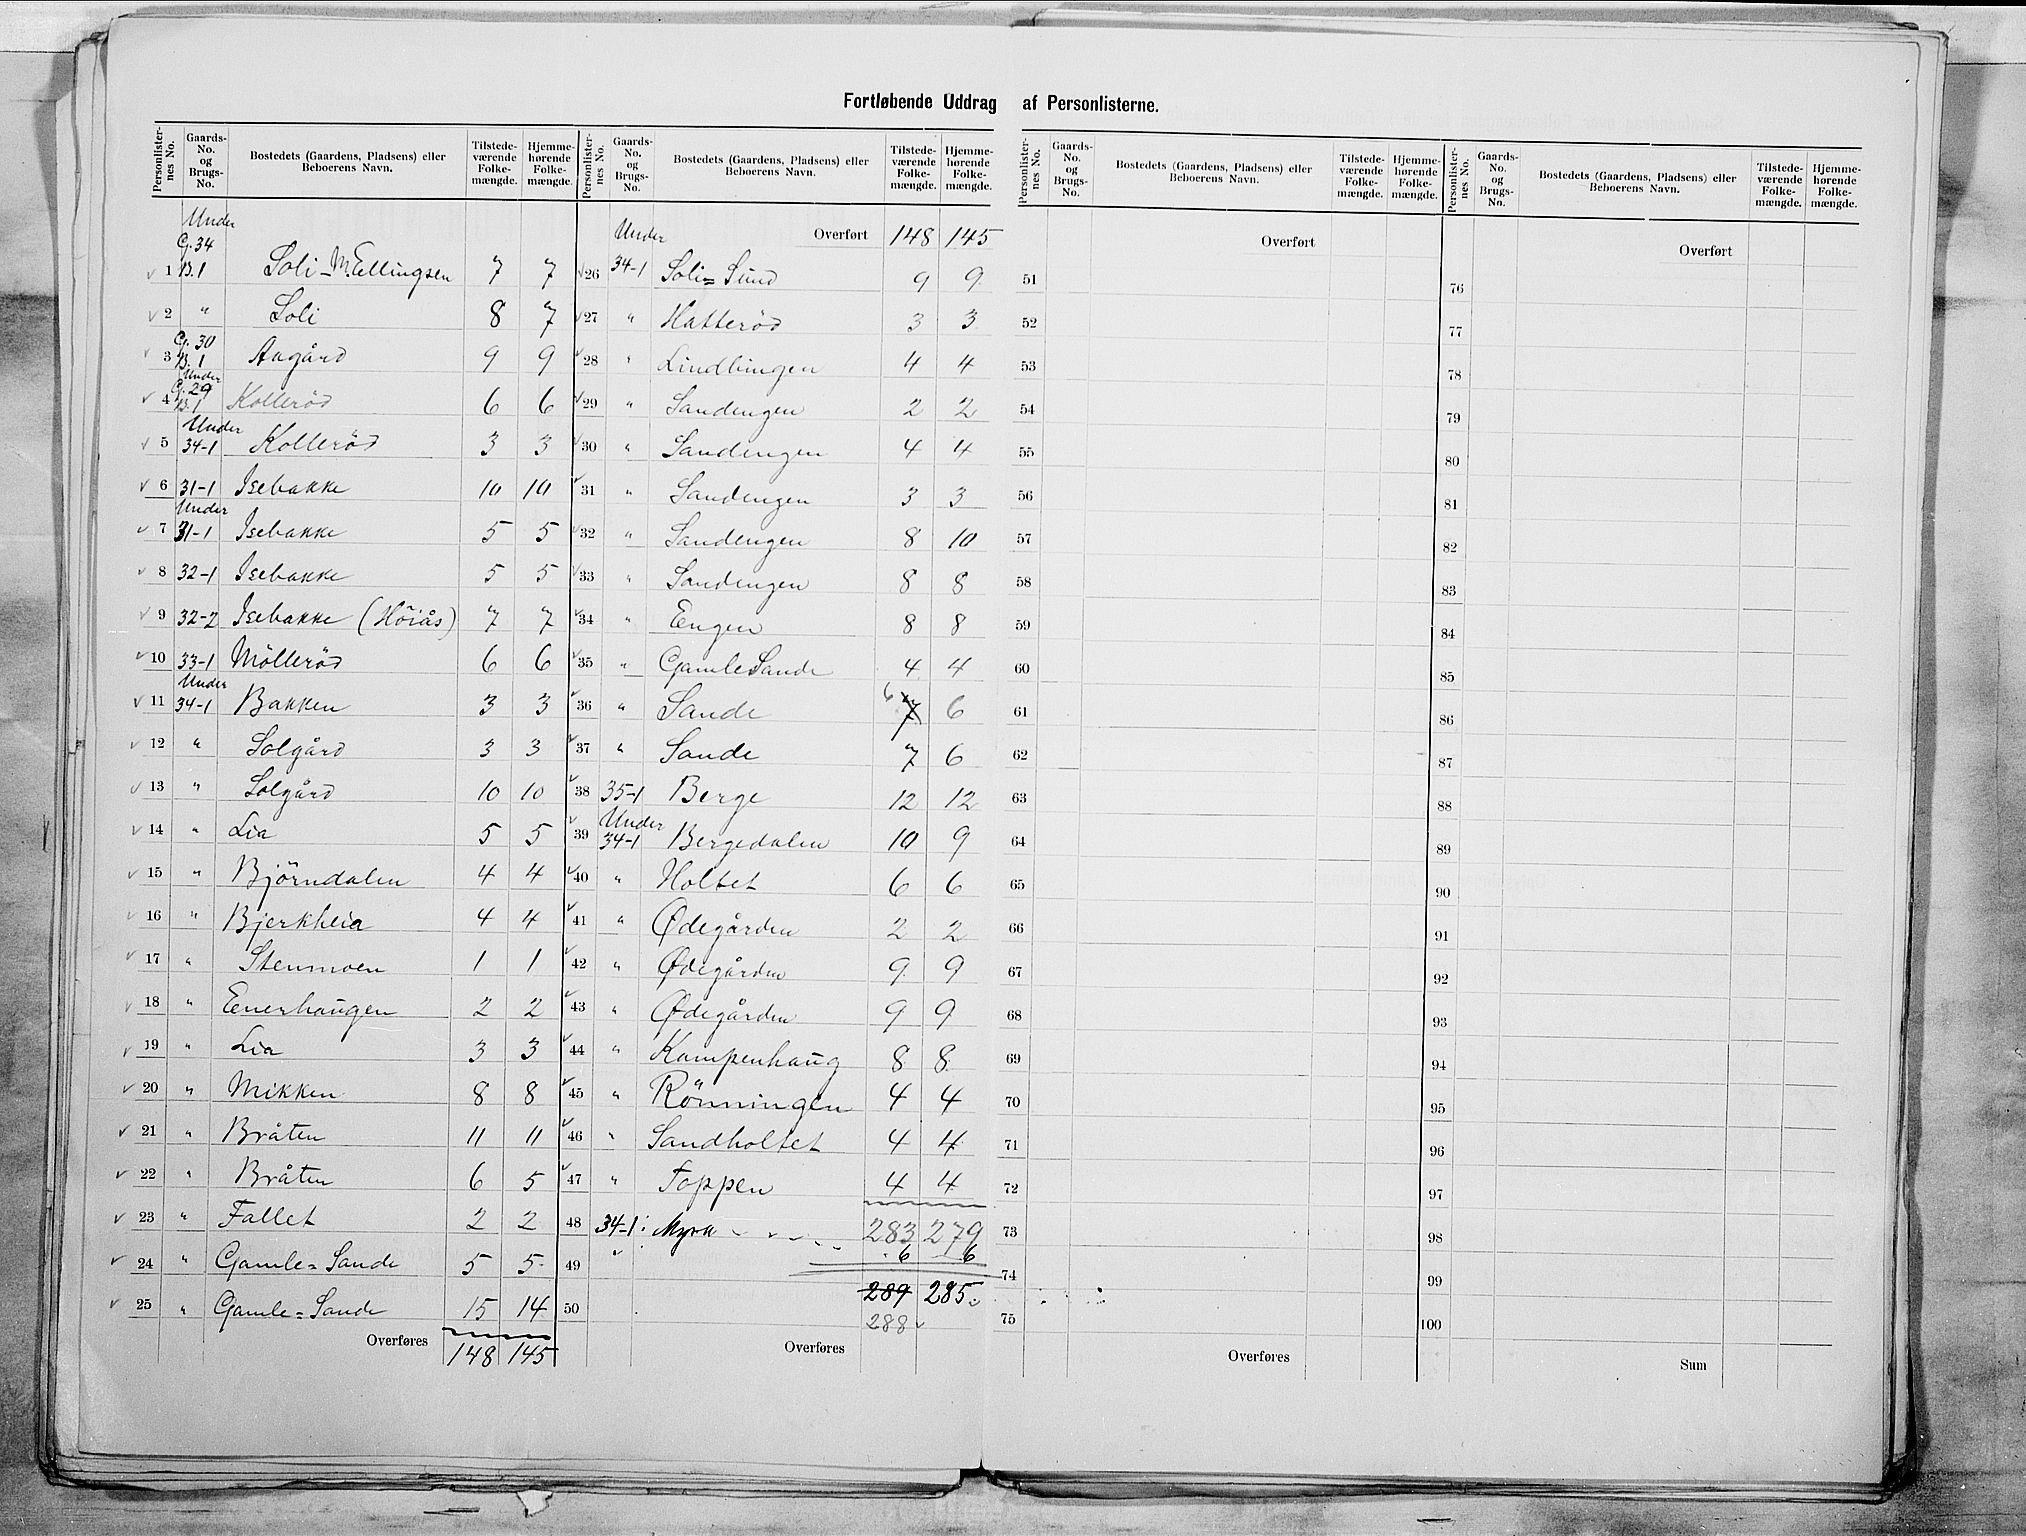 Fortløbende Uddrag af Personlisterne.
Personlister-nes No. Gaards-No. og Brugs-No. Bostedets (Gaardens, Pladsens) eller Beboerens Navn. Tilstede-værende Folke-mængde. Hjemme-hørende Folke-mængde.
Under G. 34
1 B. 1 Soli - M Ellingsen 7 7
2 " Soli 8 7
3 G. 30 B. 1 Aagård 9 9
4 Under G. 29 B. 1 Kolleröd 6 6
5 Under 34-1 Kolleröd 3 3
6 31-1 Isebakke 10 10
7 Under 31-1 Isebakke 5 5
8 32-1 Isebakke 5 5
9 32-2 Isebakke (Höiås) 7 7
10 33-1 Mölleröd 6 6
11 Under 34-1 Bakken 3 3
12 " Solgård 3 3
13 " Solgård 10 10
14 " Lia 5 5
15 " Björndalen 4 4
16 " Bjerkheia 4 4
17 " Stenmoen 1 1
18 " Enerhaugen 2 2
19 " Lia 3 3
20 " Mikken 8 8
21 " Bråten 11 11
22 " Bråten 6 5
23 " Fallet 2 2
24 " Gamle=Sande 5 5
25 " Gamle=Sande 15 14
Overføres 148 145
Personlister-nes No. Gaards-No. og Brugs-No. Bostedets (Gaardens, Pladsens) eller Beboerens Navn. Tilstede-værende Folke-mængde. Hjemme-hørende Folke-mængde.
Under Overført 148 145
26 34-1 Soli=Sund 9 9
27 " Hatteröd 3 3
28 " Lindbingen 4 4
29 " Sandengen 2 2
30 " Sandengen 4 4
31 " Sandengen 3 3
32 " Sandengen 8 10
33 " Sandengen 8 8
34 " Engen 8 8
35 " Gamle Sande 4 4
36 " Sande 6 7 6
37 " Sande 7 6
38 35-1 Berge 12 12
39 Under 34-1 Bergedalen 10 9
40 " Holtet 6 6
41 " Ødegården 2 2
42 " Ødegården 9 9
43 " Ødegården 9 9
44 " Kampenhaug 8 8
45 " Rönningen 4 4
46 " Sandholtet 4 4
47 " Toppen 4 4
48 34-1 Myra 283 279
49 " 6 6
289 285
50 288
Overføres
Personlister-nes No. Gaards-No. og Brugs-No. Bostedets (Gaardens, Pladsens) eller Beboerens Navn. Tilstede-værende Folke-mængde. Hjemme-hørende Folke-mængde.
Overført
51
52
53
54
55
56
57
58
59
60
61
62
63
64
65
66
67
68
69
70
71
72
73
74
75
Overføres
Personlister-nes No. Gaards-No. og Brugs-No. Bostedets (Gaardens, Pladsens) eller Beboerens Navn. Tilstede-værende Folke-mængde. Hjemme-hørende Folke-mængde.
Overført
76
77
78
79
80
81
82
83
84
85
86
87
88
89
90
91
92
93
94
95
96
97
98
99
100
Sum